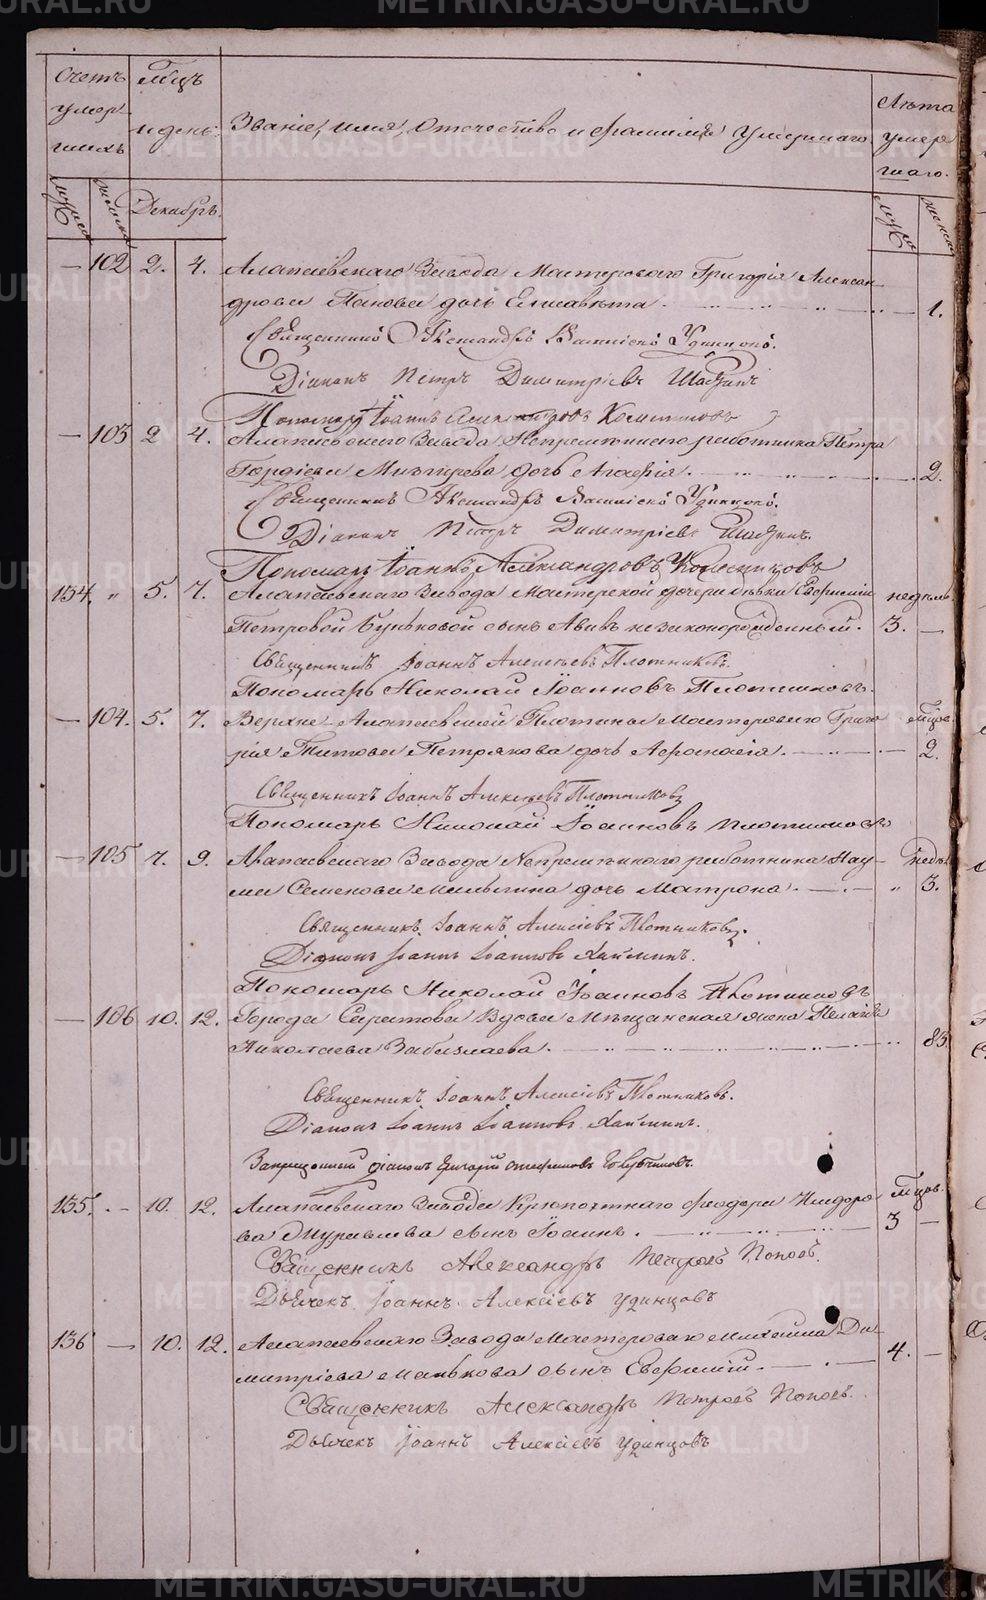 Счетъ умер- шихъ
Мѣцъ и день.
Званіе, имя, Отечество и фамилія Умершаго.
Лѣта умер шаго.
мужеска женска Декабрь. мужеска женска
— 102 2. 4. Алапаевскаго Завода Мастероваго Григорія Алексан-
дрова Панова дочь Елисавета. — 1.
Священникъ Александръ Удинцовъ.
Діаконъ Петръ Димитріевъ
Пономарь Іоаннъ Александровъ
— 103 2 4. Алапаевскаго Завода Непремѣннаго работника Петра
Гордіева дочь — 2.
Священникъ Александръ Удинцовъ.
Діаконъ Петръ Димитріевъ
Пономарь Іоаннъ Александровъ
134. „ 5. 7. Алапаевскаго Завода Мастерской дочери дѣвки Евфиміи недѣль
Петровой Буньковой сынъ Авивъ незаконорожденный. 3. —
Священникъ Іоаннъ Алексѣевъ Плотниковъ.
Пономарь Николай Іоанновъ Плотниковъ.
— 104. 5. 7. Верхне-Алапаевской Плотины Мастероваго Григо- мѣцов.
рія Титова Петрякова дочь Афанасія. — 2.
Священникъ Іоаннъ Алексѣевъ Плотниковъ
Пономарь Николай Іоанновъ Плотниковъ
— 105 7. 9. Алапаевскаго Завода Непремѣннаго работника Нау- недѣль
ма Семенова дочь Матрона. — „ 3.
Священникъ Іоаннъ Алексіевъ Плотниковъ.
Діаконъ Іоаннъ Іоанновъ
Пономарь Николай Іоанновъ Плотниковъ
— 106 10. 12. Города Саратова Вдова Мѣщанская жена Пелагія
Николаева — 85
Священникъ Іоаннъ Алексіевъ Плотниковъ.
Діаконъ Іоаннъ Іоанновъ
Запрещенный діаконъ Григорій Стефановъ
135. — 10. 12. Алапаевскаго Завода Крѣпостнаго Феодора Исидоро- мѣцов.
ва Муравьева сынъ Іоаннъ. — 3 —
Священникъ Александръ Петровъ Поповъ.
Дьячекъ Іоаннъ Алексіевъ Удинцовъ
136 — 10. 12. Алапаевскаго Завода Мастероваго Михаила Ди-
митріева Манькова сынъ Евфимій. — 4. —
Священникъ Александръ Петровъ Поповъ.
Дьячекъ Іоаннъ Алексіевъ Удинцовъ
METRIKI.GASO-URAL.RU